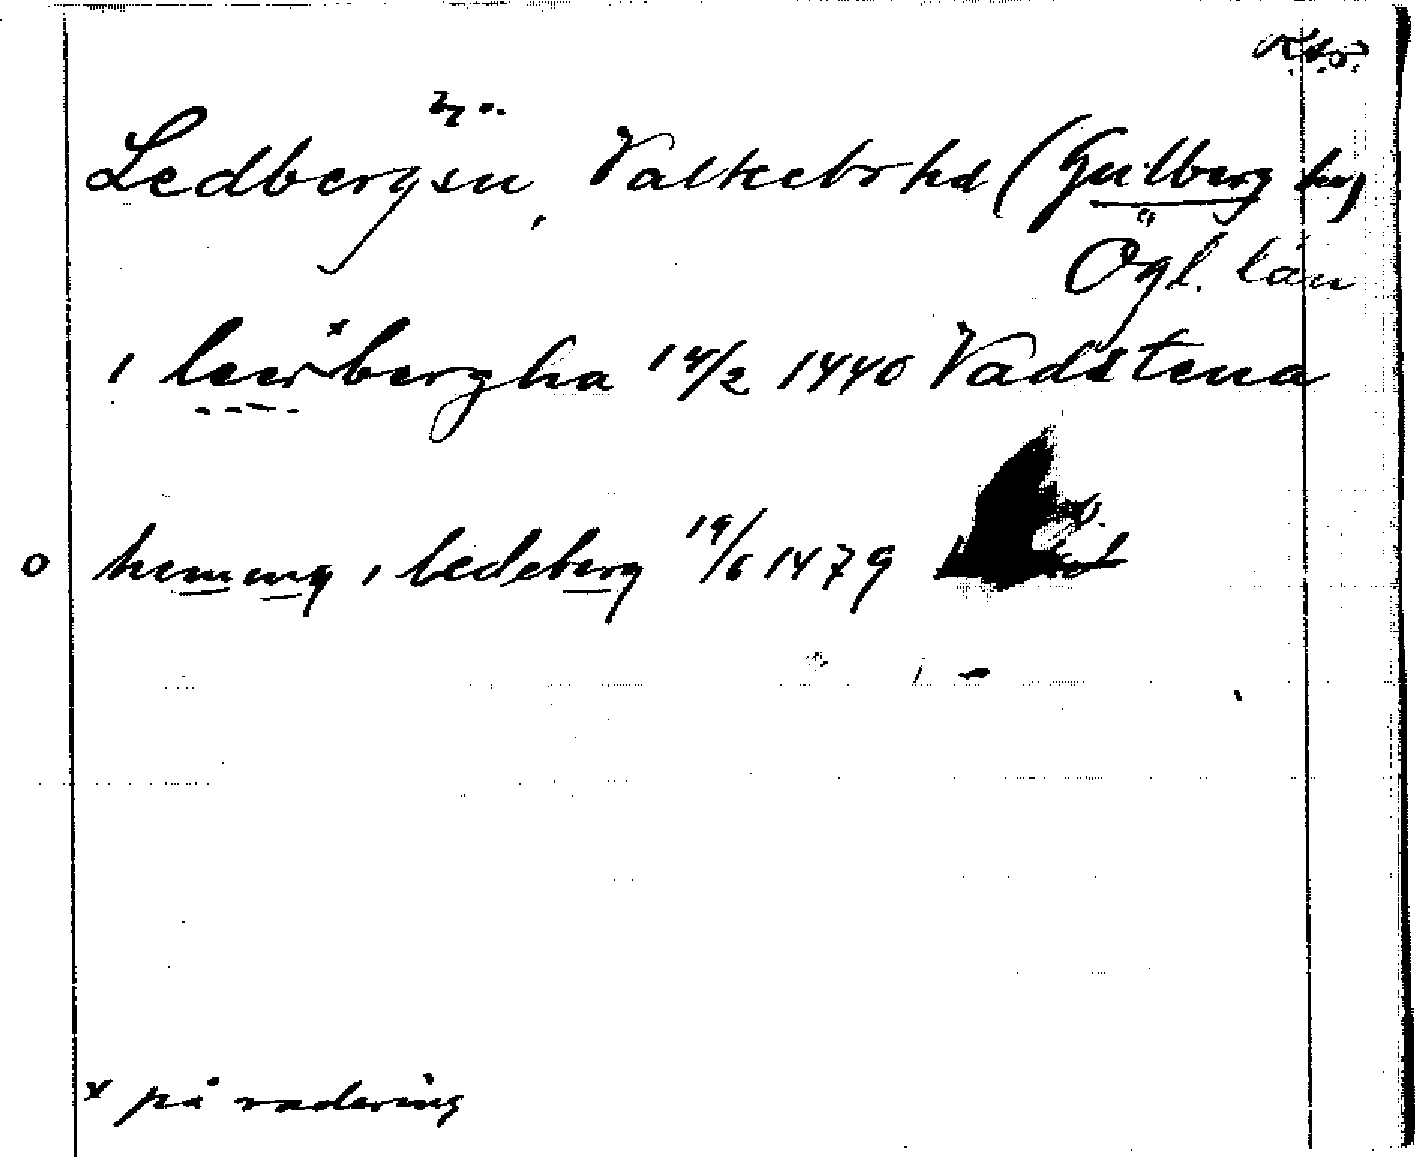 Ledberg sn, Valkebo hd (Gullberg hd)
Ögl. län
i leerˣbergha 14/2 1440 Vadstena
o heming i ledeberg 19/6 1479
x på radering